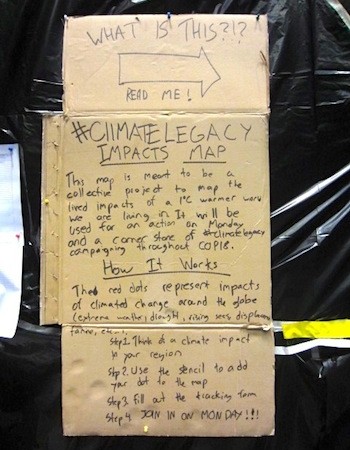 WHAT IS THIS?!?
READ ME!
#CLIMATELEGACY
IMPACTS MAP
This map is meant to be a
collective project to map the
lived impacts of a 1°C warmer world
we are living in. It will be
used for an action on Monday
and a corner stone of #climatelegacy
campaigning throughout COP18.
How It Works
The red dots represent impacts
of climated change around the globe
(extreme weather, drought, rising seas, displacement,
famine, etc...).
Step 1. Think of a climate impact
in your region
Step 2. Use the stencil to add
your dot to the map
Step 3. Fill out the tracking form
Step 4. JOIN IN ON MONDAY!!!